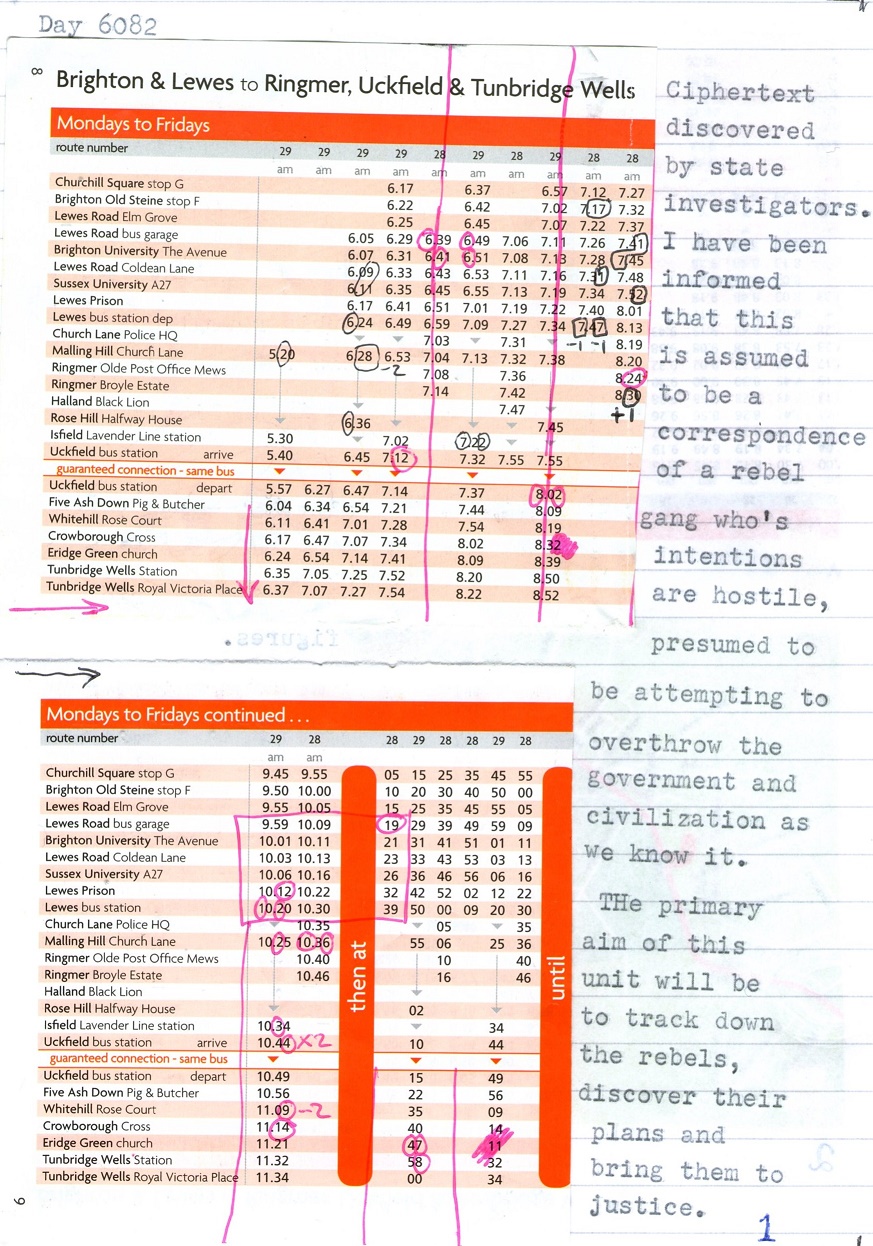 Day 6082
8
Brighton & Lewes to Ringmer, Uckfield & Tunbridge Wells
Mondays to Fridays
route number 29 29 29 29 28 29 28 29 28 28
am am am am am am am am am am
Churchill Square stop G 6.17 6.37 6.57 7.12 7.27
Brighton Old Steine stop F 6.22 6.42 7.02 7.17 7.32
Lewes Road Elm Grove 6.25 6.45 7.07 7.22 7.37
Lewes Road bus garage 6.05 6.29 6.39 6.49 7.06 7.11 7.26 7.41
Brighton University The Avenue 6.07 6.31 6.41 6.51 7.08 7.13 7.28 7.45
Lewes Road Coldean Lane 6.09 6.33 6.43 6.53 7.11 7.16 7.31 7.48
Sussex University A27 6.11 6.35 6.45 6.55 7.13 7.19 7.34 7.52
Lewes Prison 6.17 6.41 6.51 7.01 7.19 7.22 7.40 8.01
Lewes bus station dep 6.24 6.49 6.59 7.09 7.27 7.34 7.47 8.13
Church Lane Police HQ 7.03 7.31 8.19
-1 -1
Malling Hill Church Lane 5.20 6.28 6.53 7.04 7.13 7.32 7.38 8.20
-2
Ringmer Olde Post Office Mews 7.08 7.36 8.24
Ringmer Broyle Estate 7.14 7.42 8.30
+1
Halland Black Lion 7.47
Rose Hill Halfway House 6.36 7.45
Isfield Lavender Line station 5.30 7.02 7.22
Uckfield bus station arrive 5.40 6.45 7.12 7.32 7.55 7.55
guaranteed connection - same bus
Uckfield bus station depart 5.57 6.27 6.47 7.14 7.37 8.02
Five Ash Down Pig & Butcher 6.04 6.34 6.54 7.21 7.44 8.09
Whitehill Rose Court 6.11 6.41 7.01 7.28 7.54 8.19
Crowborough Cross 6.17 6.47 7.07 7.34 8.02 8.32
Eridge Green church 6.24 6.54 7.14 7.41 8.09 8.39
Tunbridge Wells Station 6.35 7.05 7.25 7.52 8.20 8.50
Tunbridge Wells Royal Victoria Place 6.37 7.07 7.27 7.54 8.22 8.52
figures.
Mondays to Fridays continued . . .
route number 29 28 28 29 28 28 29 28
am am
Churchill Square stop G 9.45 9.55 05 15 25 35 45 55
Brighton Old Steine stop F 9.50 10.00 10 20 30 40 50 00
Lewes Road Elm Grove 9.55 10.05 15 25 35 45 55 05
Lewes Road bus garage 9.59 10.09 19 29 39 49 59 09
Brighton University The Avenue 10.01 10.11 21 31 41 51 01 11
Lewes Road Coldean Lane 10.03 10.13 23 33 43 53 03 13
Sussex University A27 10.06 10.16 26 36 46 56 06 16
Lewes Prison 10.12 10.22 32 42 52 02 12 22
Lewes bus station 10.20 10.30 39 50 00 09 20 30
Church Lane Police HQ 10.35 05 35
Malling Hill Church Lane 10.25 10.36 55 06 25 36
Ringmer Olde Post Office Mews 10.40 10 40
Ringmer Broyle Estate 10.46 16 46
Halland Black Lion
Rose Hill Halfway House 02
Isfield Lavender Line station 10.34 34
Uckfield bus station arrive 10.44 x2 10 44
guaranteed connection - same bus
Uckfield bus station depart 10.49 15 49
Five Ash Down Pig & Butcher 10.56 22 56
Whitehill Rose Court 11.09 -2 35 09
Crowborough Cross 11.14 40 14
Eridge Green church 11.21 47 11
Tunbridge Wells Station 11.32 58 32
Tunbridge Wells Royal Victoria Place 11.34 00 34
then at
until
9
Ciphertext
discovered
by state
investigators.
I have been
informed
that this
is assumed
to be a
correspondence
of a rebel
gang who's
intentions
are hostile,
presumed to
be attempting to
overthrow the
government and
civilization as
we know it.
THe primary
aim of this
unit will be
to track down
the rebels,
discover their
plans and
bring them to
justice.
1